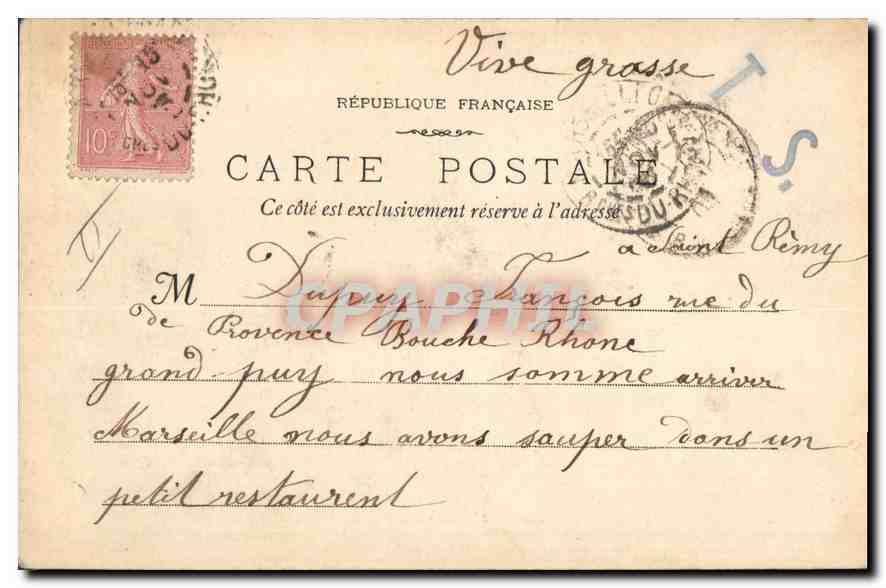 Vive grasse
T
S.
10c
RÉPUBLIQUE FRANÇAISE
CARTE POSTALE
Ce côté est exclusivement réservé à l'adresse
a Saint Rémy
M Dupuy François rue du
de Provence Bouche Rhone
grand puy nous somme arriver
Marseille nous avons souper dans un
petit restaurent
CPAPHIL